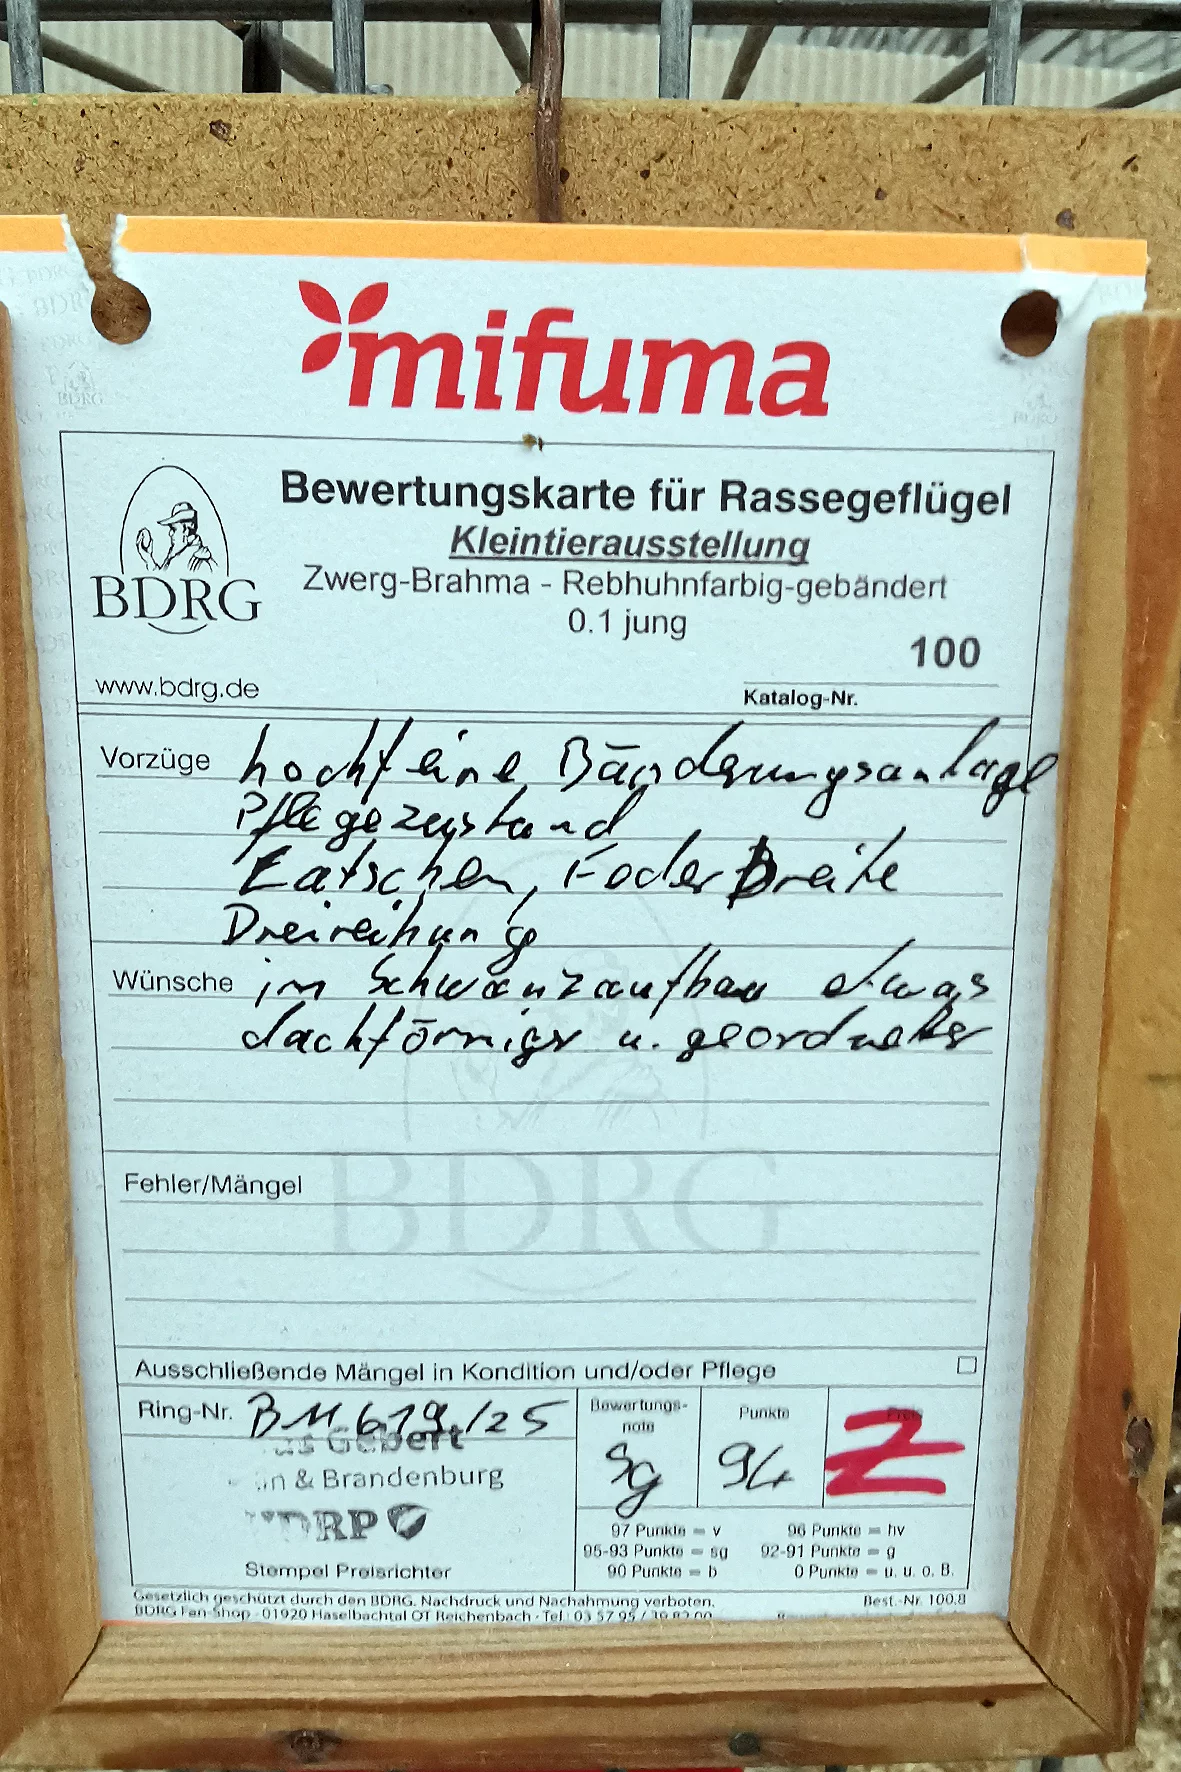 mifuma
Bewertungskarte für Rassegeflügel
Kleintierausstellung
Zwerg-Brahma - Rebhuhnfarbig-gebändert
0.1 jung
100
BDRG
www.bdrg.de
Katalog-Nr.
Vorzüge hochfeine Bänderungsanlage
Pflegezustand
Latschen, Feder Breite
Dreireihung
Wünsche im Schwanzaufbau etwas
dachförmiger u. geordneter
BDRG
Fehler/Mängel
Ausschließende Mängel in Kondition und/oder Pflege
Ring-Nr. BM 619/25
Bewertungs-
note
Sg
Punkte
94
Preis
Z
Gebert
& Brandenburg
Stempel Preisrichter
97 Punkte = v 96 Punkte = hv
95-93 Punkte = sg 92-91 Punkte = g
90 Punkte = b 0 Punkte = u. u. o. B.
Gesetzlich geschützt durch den BDRG. Nachdruck und Nachahmung verboten. Best.-Nr. 100.8
BDRG Fan-Shop · 01920 Haselbachtal OT Reichenbach · Tel.: 03 57 95 /